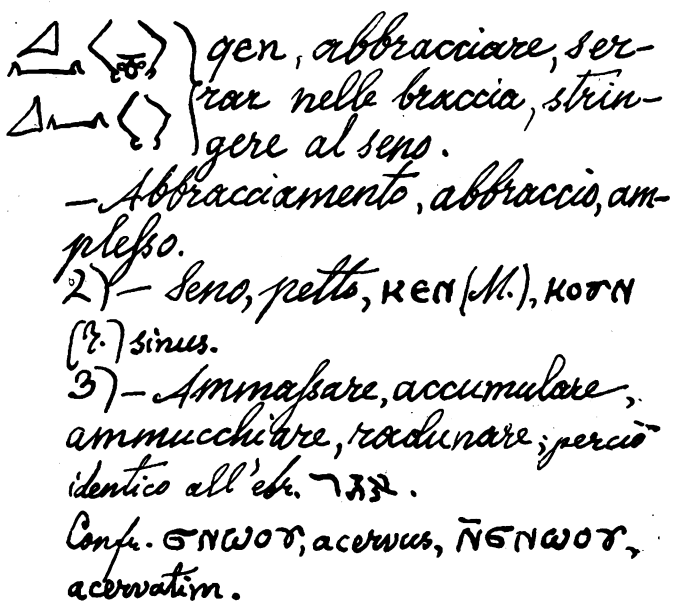 𓈎𓈖𓂘 qen, abbracciare, ser-
𓈎𓈖𓂘 rar nelle braccia, strin-
gere al seno.
— Abbracciamento, abbraccio, am-
plesso.
2) — Seno, petto, ⲕⲉⲛ (M.), ⲕⲟⲩⲛ
(T.) sinus.
3) — Ammassare, accumulare,
ammucchiare, radunare; perciò
identico all'ebr. אגר.
Confr. ϭⲛⲱⲟⲩ, acervus, ⲛ̄ϭⲛⲱⲟⲩ,
acervatim.